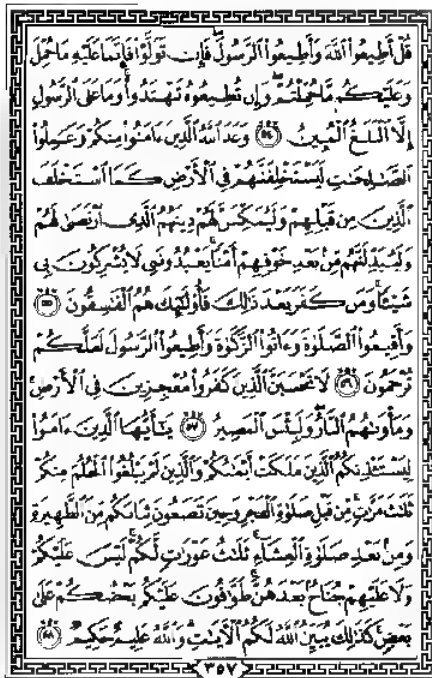 قُلْ أَطِيعُوا۟ ٱللَّهَ وَأَطِيعُوا۟ ٱلرَّسُولَ ۖ فَإِن تَوَلَّوْا۟ فَإِنَّمَا عَلَيْهِ مَا حُمِّلَ
وَعَلَيْكُم مَّا حُمِّلْتُمْ ۖ وَإِن تُطِيعُوهُ تَهْتَدُوا۟ ۚ وَمَا عَلَى ٱلرَّسُولِ
إِلَّا ٱلْبَلَـٰغُ ٱلْمُبِينُ ٥٤ وَعَدَ ٱللَّهُ ٱلَّذِينَ ءَامَنُوا۟ مِنكُمْ وَعَمِلُوا۟
ٱلصَّـٰلِحَـٰتِ لَيَسْتَخْلِفَنَّهُمْ فِى ٱلْأَرْضِ كَمَا ٱسْتَخْلَفَ
ٱلَّذِينَ مِن قَبْلِهِمْ وَلَيُمَكِّنَنَّ لَهُمْ دِينَهُمُ ٱلَّذِى ٱرْتَضَىٰ لَهُمْ
وَلَيُبَدِّلَنَّهُم مِّنۢ بَعْدِ خَوْفِهِمْ أَمْنًا ۚ يَعْبُدُونَنِى لَا يُشْرِكُونَ بِى
شَيْـًٔا ۚ وَمَن كَفَرَ بَعْدَ ذَٰلِكَ فَأُو۟لَـٰٓئِكَ هُمُ ٱلْفَـٰسِقُونَ ٥٥
وَأَقِيمُوا۟ ٱلصَّلَوٰةَ وَءَاتُوا۟ ٱلزَّكَوٰةَ وَأَطِيعُوا۟ ٱلرَّسُولَ لَعَلَّكُمْ
تُرْحَمُونَ ٥٦ لَا تَحْسَبَنَّ ٱلَّذِينَ كَفَرُوا۟ مُعْجِزِينَ فِى ٱلْأَرْضِ ۚ
وَمَأْوَىٰهُمُ ٱلنَّارُ ۖ وَلَبِئْسَ ٱلْمَصِيرُ ٥٧ يَـٰٓأَيُّهَا ٱلَّذِينَ ءَامَنُوا۟
لِيَسْتَـْٔذِنكُمُ ٱلَّذِينَ مَلَكَتْ أَيْمَـٰنُكُمْ وَٱلَّذِينَ لَمْ يَبْلُغُوا۟ ٱلْحُلُمَ مِنكُمْ
ثَلَـٰثَ مَرَّٰتٍ ۚ مِّن قَبْلِ صَلَوٰةِ ٱلْفَجْرِ وَحِينَ تَضَعُونَ ثِيَابَكُم مِّنَ ٱلظَّهِيرَةِ
وَمِنۢ بَعْدِ صَلَوٰةِ ٱلْعِشَآءِ ۚ ثَلَـٰثُ عَوْرَٰتٍ لَّكُمْ ۚ لَيْسَ عَلَيْكُمْ
وَلَا عَلَيْهِمْ جُنَاحٌۢ بَعْدَهُنَّ ۚ طَوَّٰفُونَ عَلَيْكُم بَعْضُكُمْ عَلَىٰ
بَعْضٍ ۚ كَذَٰلِكَ يُبَيِّنُ ٱللَّهُ لَكُمُ ٱلْـَٔايَـٰتِ ۗ وَٱللَّهُ عَلِيمٌ حَكِيمٌ ٥٨
٣٥٧